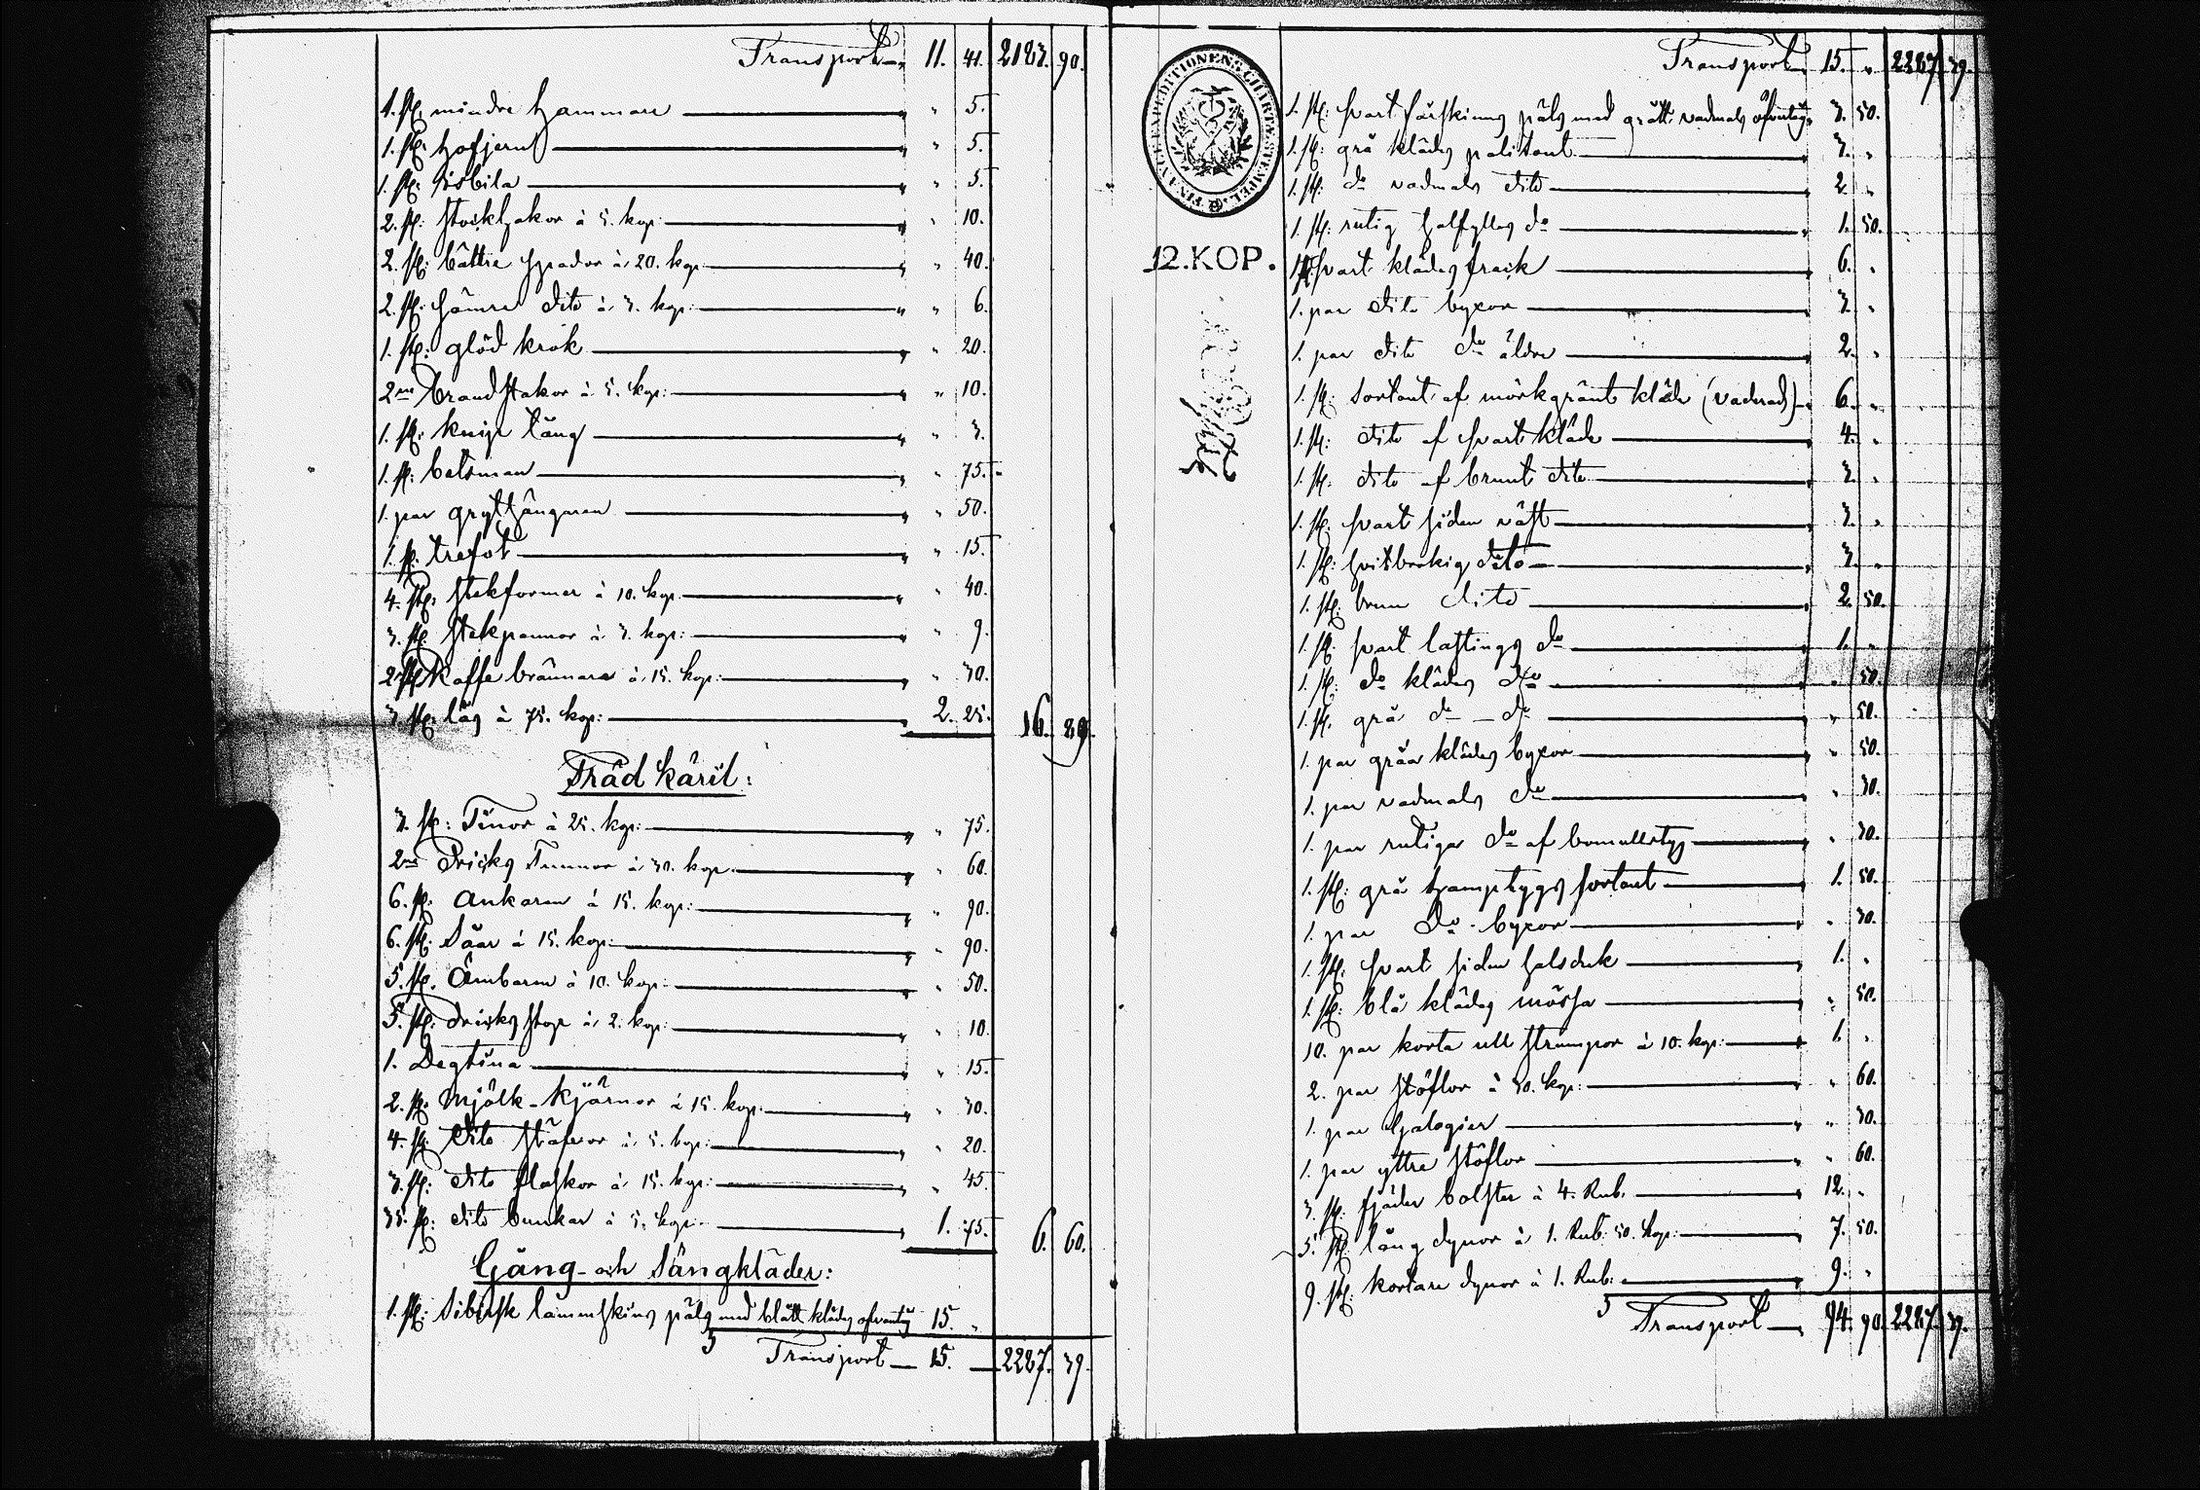 Transport 11. 41. 2183. 90.
1. st: mindre hammare " 5.
1. st: hofjern " 5.
1. st: Isbila " 5.
2. st: stockhakor à 5. kop: " 10.
2. st: bättre spador à 20. kop: " 40.
2. st: sämre dito à 3. kop: " 6.
1. st: glöd krok " 20.
2ne brandstakor à 5. kop: " 10.
1. st: knip tång " 3.
1. st: betsman " 75.
1. par grythängaren " 50.
1. st: trefot " 15.
4. st: stekformar à 10. kop. " 40.
3. st: stekpannor à 3. kop: " 9.
2 st: kaffe brännare à 15. kop: " 30.
3. st: lås à 75. kop: 2. 25. 16. 89.
Träd käril:
3. st: Tinor à 25. kop: " 75.
2ne Dricks Tunnor à 30. kop. " 60.
6. st: Ankaren à 15. kop: " 90.
6. st: Såar à 15. kop: " 90.
5. st. Ämbaren à 10. kop: " 50.
5. st: dricks stop à 2. kop: " 10.
1. Degtina " 15.
2. st: Mjölk-kjärnor à 15. kop: " 30.
4. st: dito stäfvor à 5. kop: " 20.
3. st: dito flaskor à 15. kop: " 45.
35. st: dito bunkar à 5. kop: 1. 75. 6. 60.
Gång- och Sängkläder:
1. st: Sibirsk lammskins päls med blått klädes ofvantyg 15. "
Transport 15. 2287. 39.
FINSKA EXPEDITIONENS CHARTÆ STEMPEL.
12.KOP.
Transport 15. " 2287. 39.
1. st: svart fårskinns päls med grått vadmals ofvantyg 3. 50.
1. st: grå klädes palitout 3. "
1. st: do vadmals dito 2. "
1. st: rutig halfylles do 1. 50.
1. st: svart klädes frack 6. "
1. par dito byxor 3. "
1. par dito do äldre 2. "
1. st: sortout af mörkgrönt kläde (vaderad) 6. "
1. st: dito af svart kläde 4. "
1. st: dito af brunt dito 3. "
1. st: svart siden väst 3. "
1. st: hvitbrokig dito 3. "
1. st: brun dito 2. 50.
1. st: svart lastings do 1. "
1. st: do klädes do " 50.
1. st. grå do - do " 50.
1. par gråa klädes byxor " 50.
1. par vadmals do " 30.
1. par rutiga do af bomullstyg " 30.
1. st: grå hamptygs sortout 1. 50.
1. par do byxor " 30.
1. st. svart siden halsduk 1. "
1. st: blå klädes mössa " 50.
10. par korta ull strumpor à 10. kop: 1. "
2. par stöflor à 30. kop: " 60.
1. par Galogier " 30.
1. par yttre stöflor " 60.
3. st. fjäder bolster à 4. Rub. 12. "
5. st: lång dynor à 1. Rub: 50. kop: 7. 50.
9. st: kortare dynor à 1. Rub: 9. "
Transport 94. 90. 2287. 39.